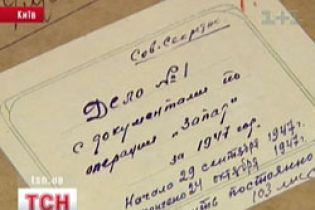 Київ
1+1
Сов. Секретно
Дело №1
с документами по
операции "Запад"
за 1947 год.
Начато 29 сентября 1947г.
24 октября 1947г.
постоянно
103 лис
tsn.ua
ТСН